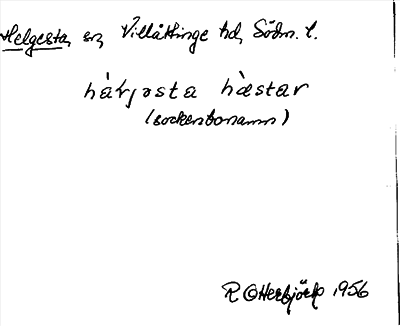 Helgesta sn, Villåttinge hd, Södm. l.
hàƚjəsta hàstar
(sockenbonamn)
R Herbjörk 1956